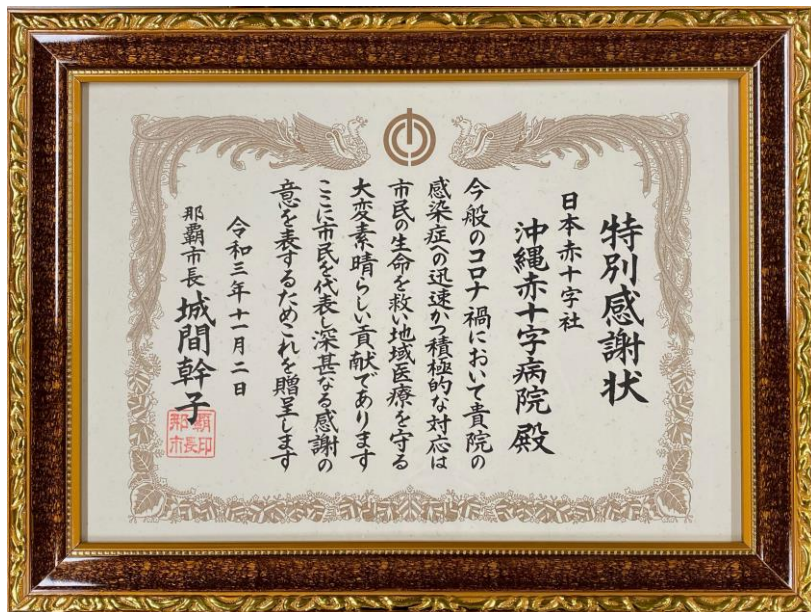 特別感謝状
日本赤十字社
沖縄赤十字病院 殿
今般のコロナ禍において貴院の
感染症への迅速かつ積極的な対応は
市民の生命を救い地域医療を守る
大変素晴らしい貢献であります
ここに市民を代表し深甚なる感謝の
意を表するためこれを贈呈します
令和三年十一月二日
那覇市長 城間幹子
那覇市長印